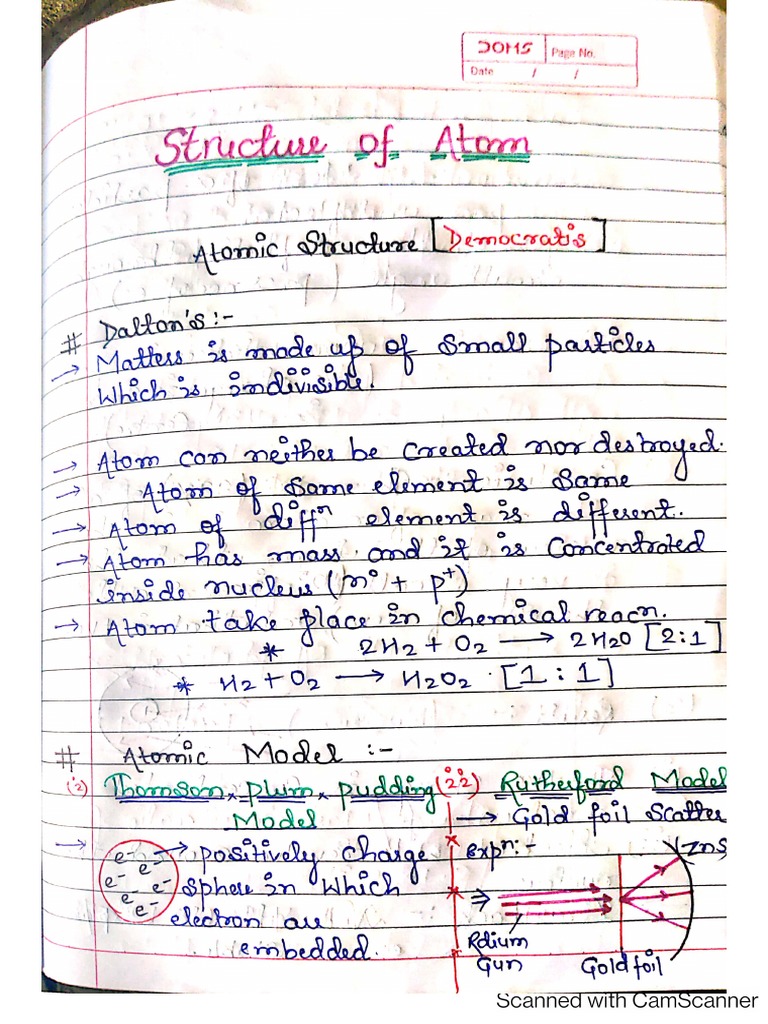 DOMS Page No.
Date / /
Structure of Atom
Atomic Structure [Democratis]
# Dalton's :-
→ Matters is made up of small particles
which is indivisible.
→ Atom can neither be created nor destroyed.
→ Atom of same element is same
→ Atom of diffⁿ element is different.
→ Atom has mass and it is concentrated
inside nucleus (n° + p⁺)
→ Atom take place in chemical reacn.
* 2H2 + O2 → 2H2O [2:1]
* H2 + O2 → H2O2 . [1 : 1]
# Atomic Model :-
(i) Thomson x plum x pudding
Model
→ positively charge
sphere in which
electron are
embedded.
e⁻ e⁻ e⁻ e⁻ e⁻ e⁻
(ii) Rutherford Model
→ Gold foil Scatter
expⁿ:-
ZnS
Rdium
Gun
Gold foil
Scanned with CamScanner